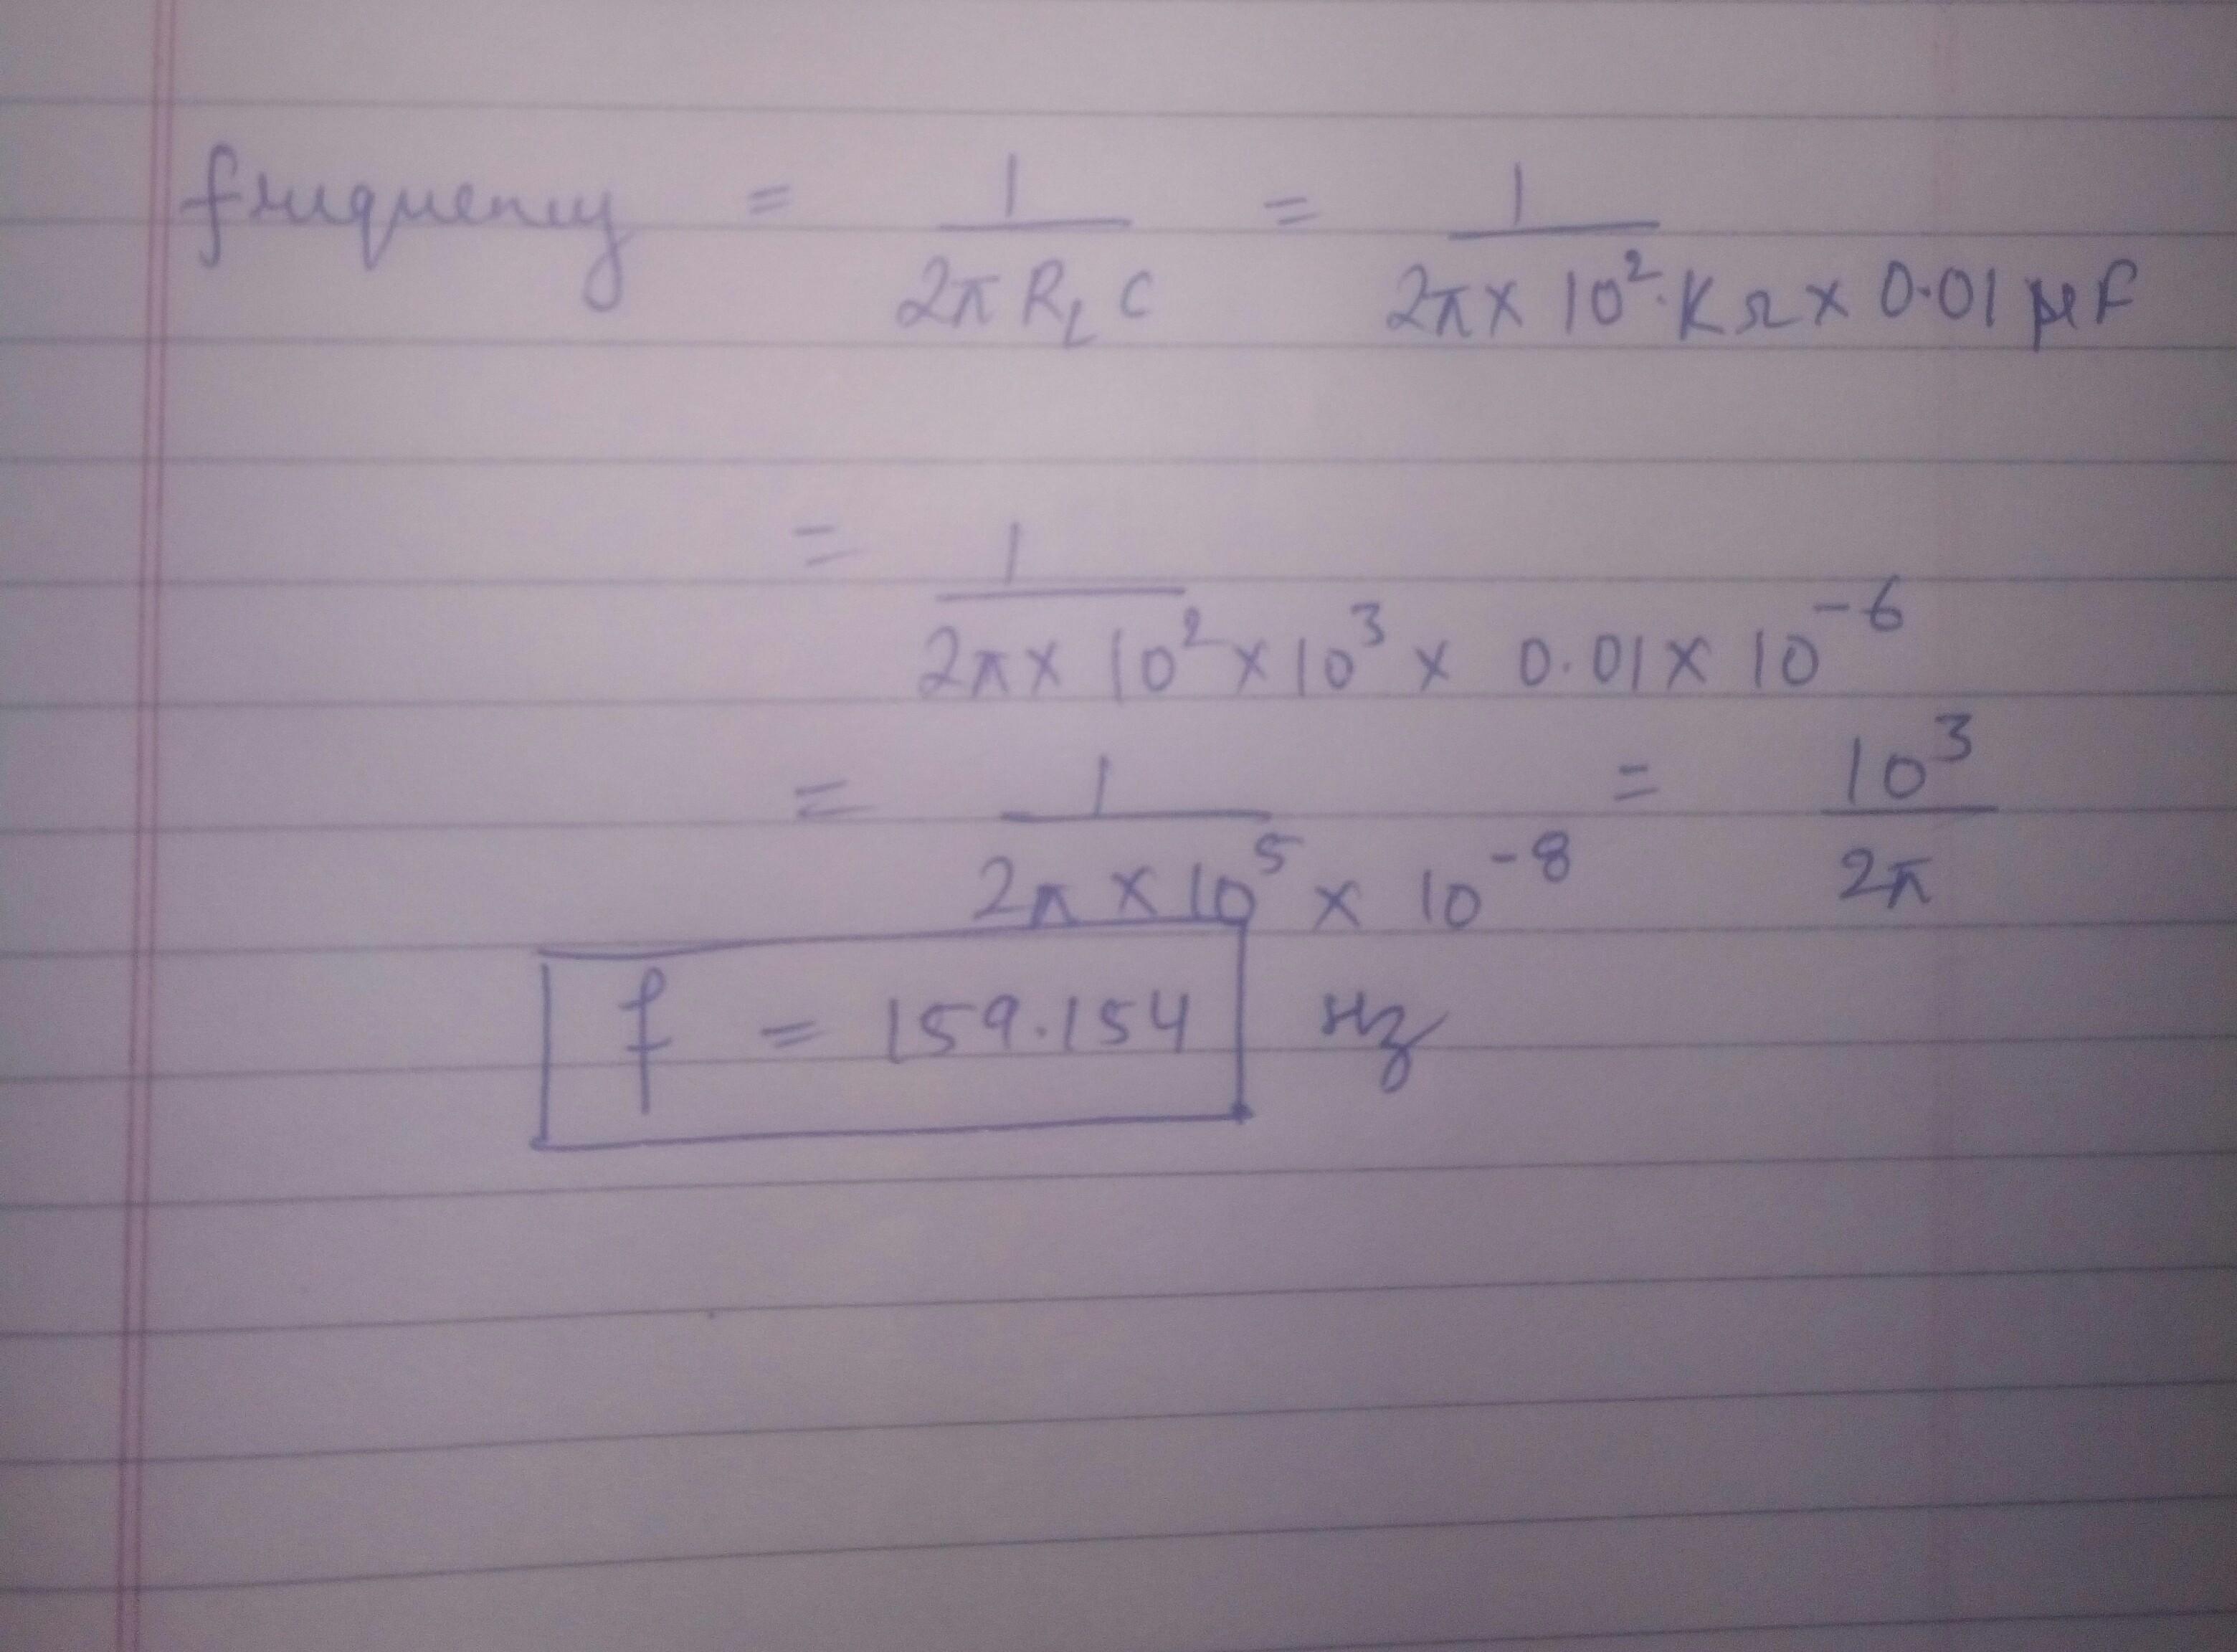 frequency = 1/(2π R_L C) = 1/(2π × 10².KΩ × 0.01 μF)
= 1/(2π × 10² × 10³ × 0.01 × 10⁻⁶)
= 1/(2π × 10⁵ × 10⁻⁸) = 10³/(2π)
f = 159.154 Hz